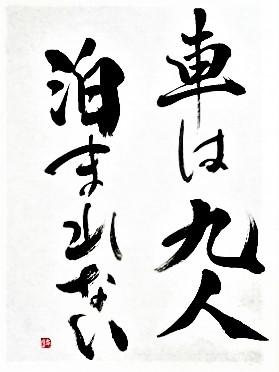 車は九人
泊まれない